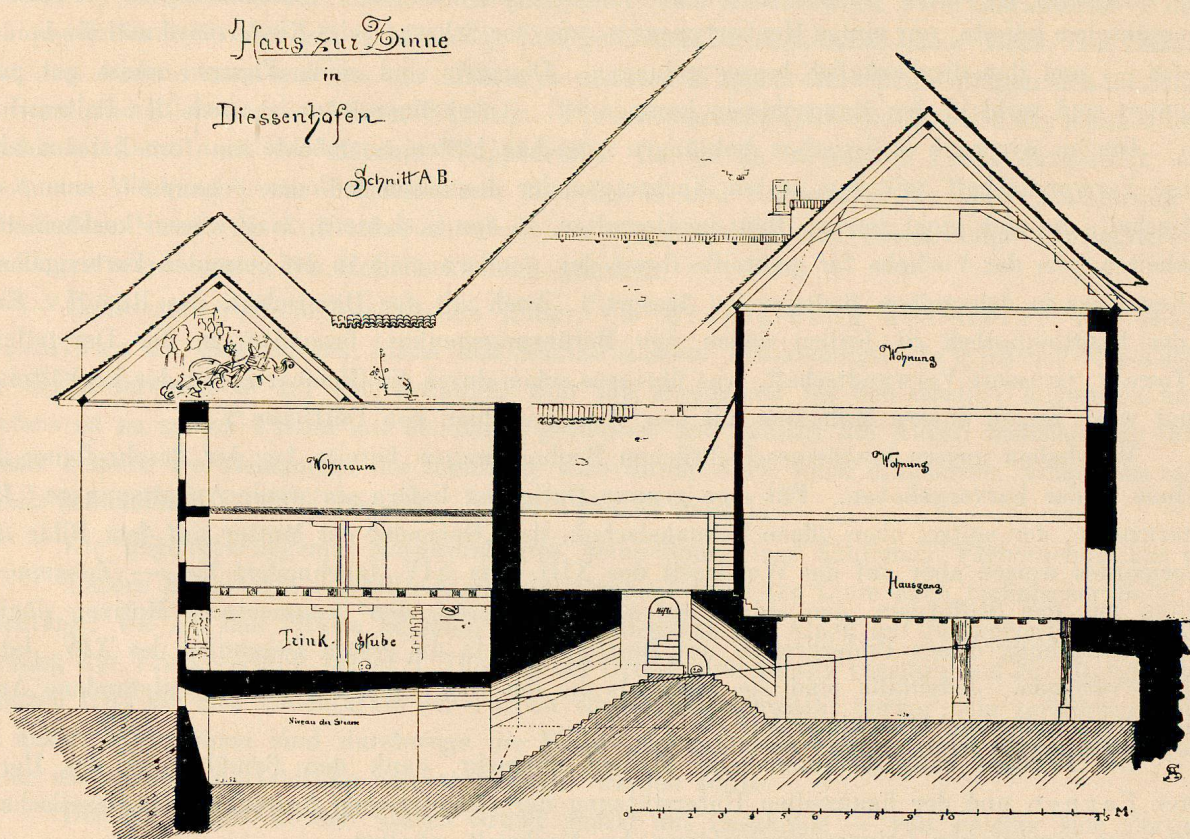 Haus zur Zinne
in
Diessenhofen
Schnitt A B.
Wohnung
Wohnraum
Wohnung
Hausgang
Trink-Stube
Niveau der Strasse
0 1 2 3 4 5 6 7 8 9 10 15 M.